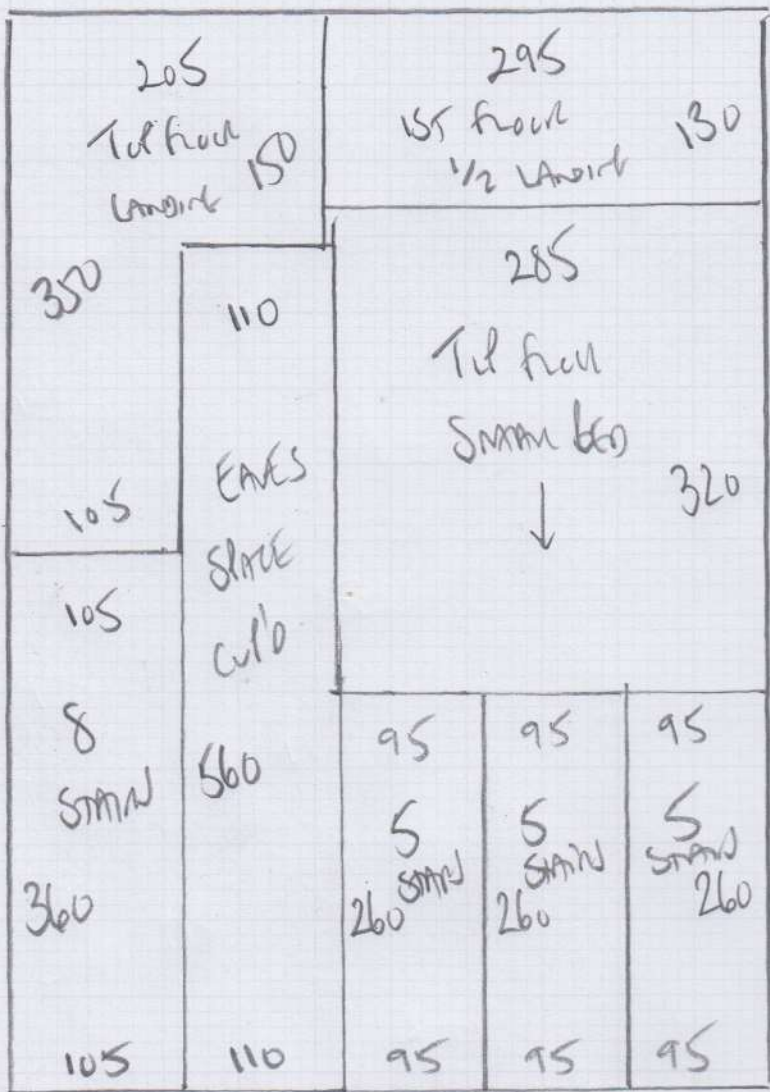 205
Top floor
Landing
150
350
105
295
1st floor
1/2 Landing
130
110
EAVES
SPACE
CUP'D
560
110
285
Top floor
Small bed
320
105
8
STAIRS
360
105
95
5
STAIRS
260
95
95
5
STAIRS
260
95
95
5
STAIRS
260
95